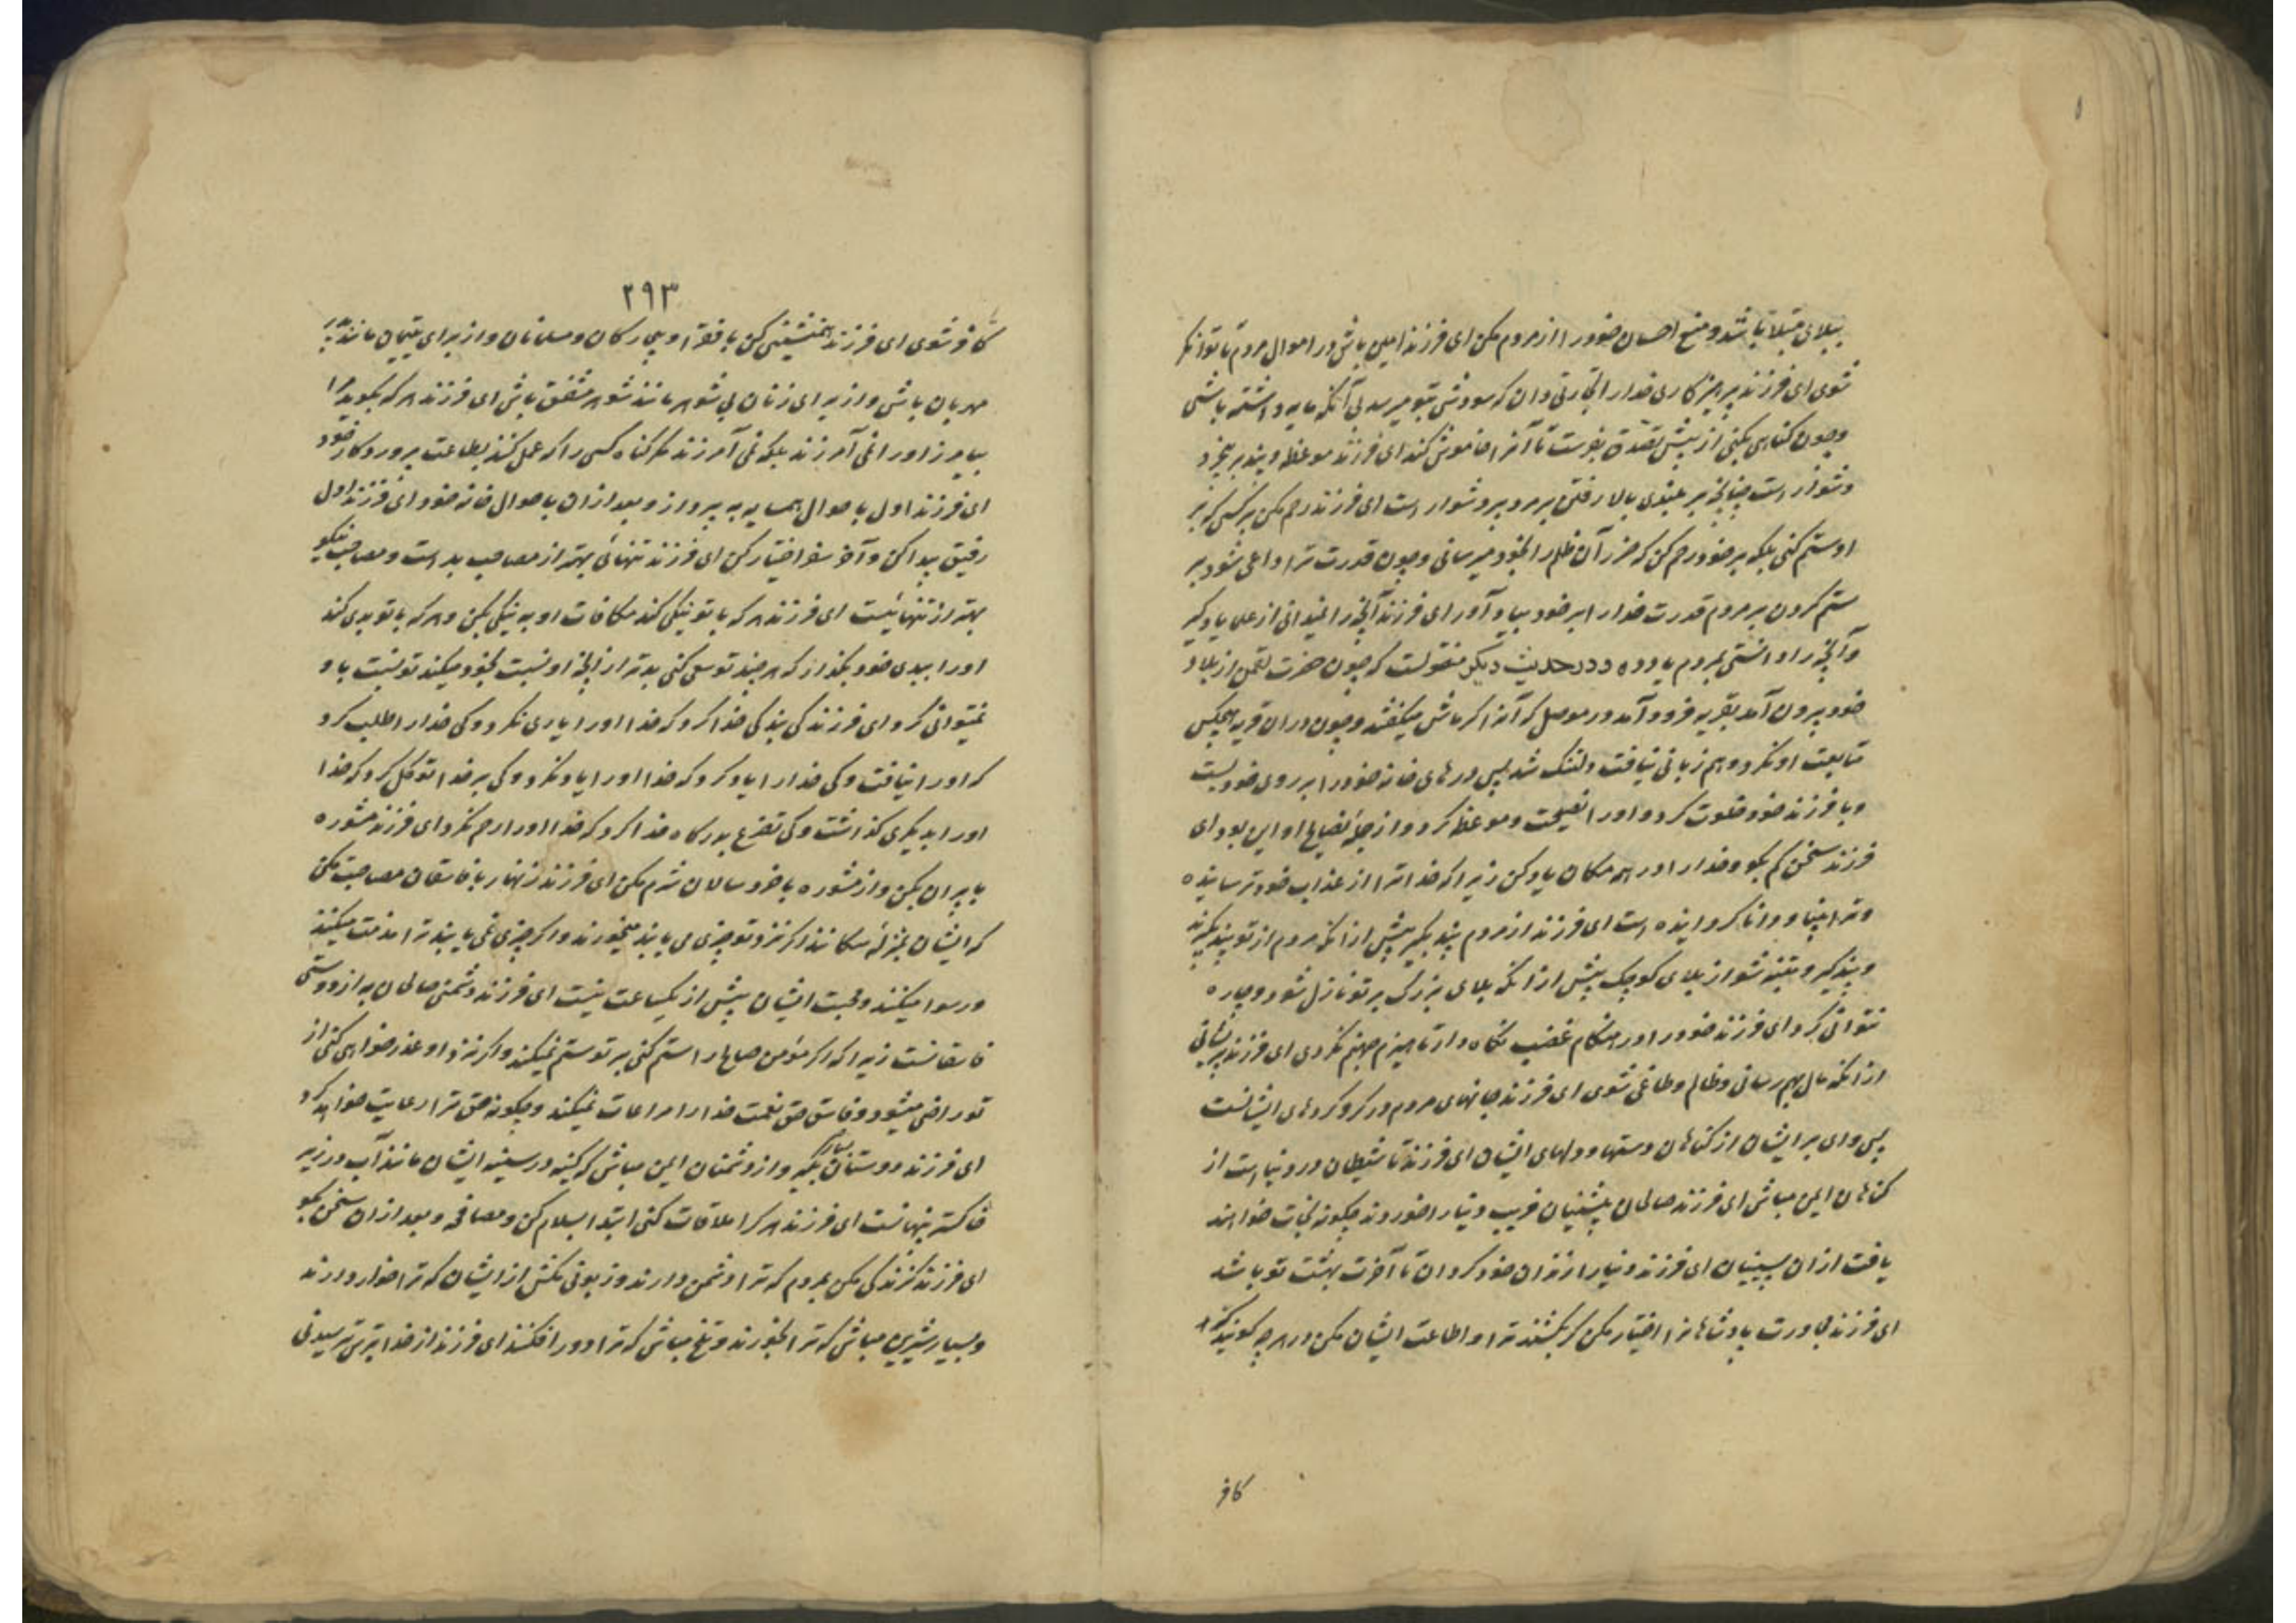 ببلای مبتلا باشد و منع احسان خود را از مردم مکن ای فرزند امین باش در اموال مردم تا توانکر
شوی ای فرزند پرهیزکاری خدا را تجارتی دان که سودش بتو میرسد بی آنکه مایه داشته باشی
و چون کناهی بکنی از پیش تصدق بفرست تا آنرا خاموش کند ای فرزند موعظه و پند بر بیخرد
دشوار است چنانچه بر بلندی بالا رفتن بر مرد پیر دشوار است ای فرزند رحم مکن بر کسی که بر
او ستم کنی بلکه بر خود رحم کن که ضرر آن ظلم را بخود میرسانی و چون قدرت ترا داعی شود بر
ستم کردن بر مردم قدرت خدا را بر خود بیاد آور ای فرزند آنچه را نمیدانی از علما یاد کیر
و آنچه را دانستی بمردم یاد ده و در حدیث دیکر منقولست که چون حضرت لقمن از بلاد
خود بیرون آمد بقریه فرود آمد در موصل که آنرا کرماش میکفتند و چون در ان قریه هیچکس
متابعت او نکرد و هم زبانی نیافت دلتنک شد پس درهای خانه خود را بر روی خود بست
و با فرزند خود خلوت کرد و او را نصیحت و موعظه کرد و از جمله نصایح او این بود ای
فرزند سخن کم بکو و خدا را در همه مکان یاد کن زیرا که خدا ترا از عذاب خود ترسانیده
و ترا بینا و دانا کردانیده است ای فرزند از مردم پند بکیر پیش از انکه مردم از تو پند بکیرند
و پند کیر و متنبه شو از بلای کوچک پیش از انکه بلای بزرک بر تو نازل شود و چاره
نتوانی کرد ای فرزند خود را در هنکام غضب نکاه دار تا هیزم جهنم نکردی ای فرزند پریشانی
از انکه مال بهم رسانی و ظالم و طاغی شوی ای فرزند جانهای مردم در کرو کردهای ایشانست
پس وای بر ایشان از کناهان دستها و دلهای ایشان ای فرزند تا شیطان در دنیا است از
کناهان ایمن مباش ای فرزند صالحان پیشینیان فریب دنیا را خوردند چکونه نجات خواهند
یافت از ان پسینیان ای فرزند دنیا را زندان خود کردان تا آخرت بهشت تو باشد
ای فرزند مجاورت پادشاهانرا اختیار مکن که بکشند ترا و اطاعت ایشان مکن در هر چه کویند که
کافر
۲۹۳
کافر شوی ای فرزند همنشینی کن با فقرا و بیچارکان و مسلمانان و از برای یتیمان مانند پدر
مهربان باش و از برای زنان بی شوهر مانند شوهر مشفق باش ای فرزند هر که بکوید مرا
بیامرز او را نمی آمرزند بلکه نمی آمرزند مکر کناه کسی را که عمل کند بطاعت پروردکار خود
ای فرزند اول باحوال همسایه بپرداز و بعد از ان باحوال خانه خود ای فرزند اول
رفیق پیدا کن و آخر سفر اختیار کن ای فرزند تنهائی بهتر از مصاحب بد است و مصاحب نیکو
بهتر از تنهائیست ای فرزند هر که با تو نیکی کند مکافات او به نیکی بکن و هر که با تو بدی کند
او را ببدی خود بکذار که هر چند تو سعی کنی بدتر از انچه او نسبت بخود میکند تو نسبت باو
نمیتوانی کرد ای فرزند کی بندکی خدا کرد که خدا او را یاری نکرد و کی خدا را طلب کرد
که او را نیافت و کی خدا را یاد کرد که خدا او را یاد نکرد و کی بر خدا توکل کرد که خدا
او را بدیکری کذاشت و کی تضرع بدرکاه خدا کرد که خدا او را رحم نکرد ای فرزند مشوره
با پیران بکن و از مشوره با خرد سالان شرم مکن ای فرزند زنهار با فاسقان مصاحبت مکن
که ایشان بمنزلهٔ سکانند اکر نزد تو چیزی می یابند میخورند و اکر چیزی نمی یابند ترا مذمت میکنند
و رسوا میکنند و محبت ایشان پیش از یکساعت نیست ای فرزند دشمنی صالحان به از دوستی
فاسقانست زیرا که اکر مؤمن صالح را ستم کنی بر تو ستم نمیکند و اکر نزد او عذر خواهی کنی از
تو راضی میشود و فاسق حق نعمت خدا را مراعات نمیکند و چکونه حق ترا رعایت خواهد کرد
ای فرزند دوستان بسیار بکیر و از دشمنان ایمن مباش که کینه در سینه ایشان مانند آب در زیر
خاکستر پنهانست ای فرزند هر کرا ملاقات کنی ابتدا بسلام کن و مصافحه و بعد از ان سخن بکو
ای فرزند کزندکی مکن بمردم که ترا دشمن دارند و زبونی مکش از ایشان که ترا خوار دارند
و بسیار شیرین مباش که ترا بخورند و تلخ مباش که ترا دور افکنند ای فرزند از خدا بترس ترسیدنی